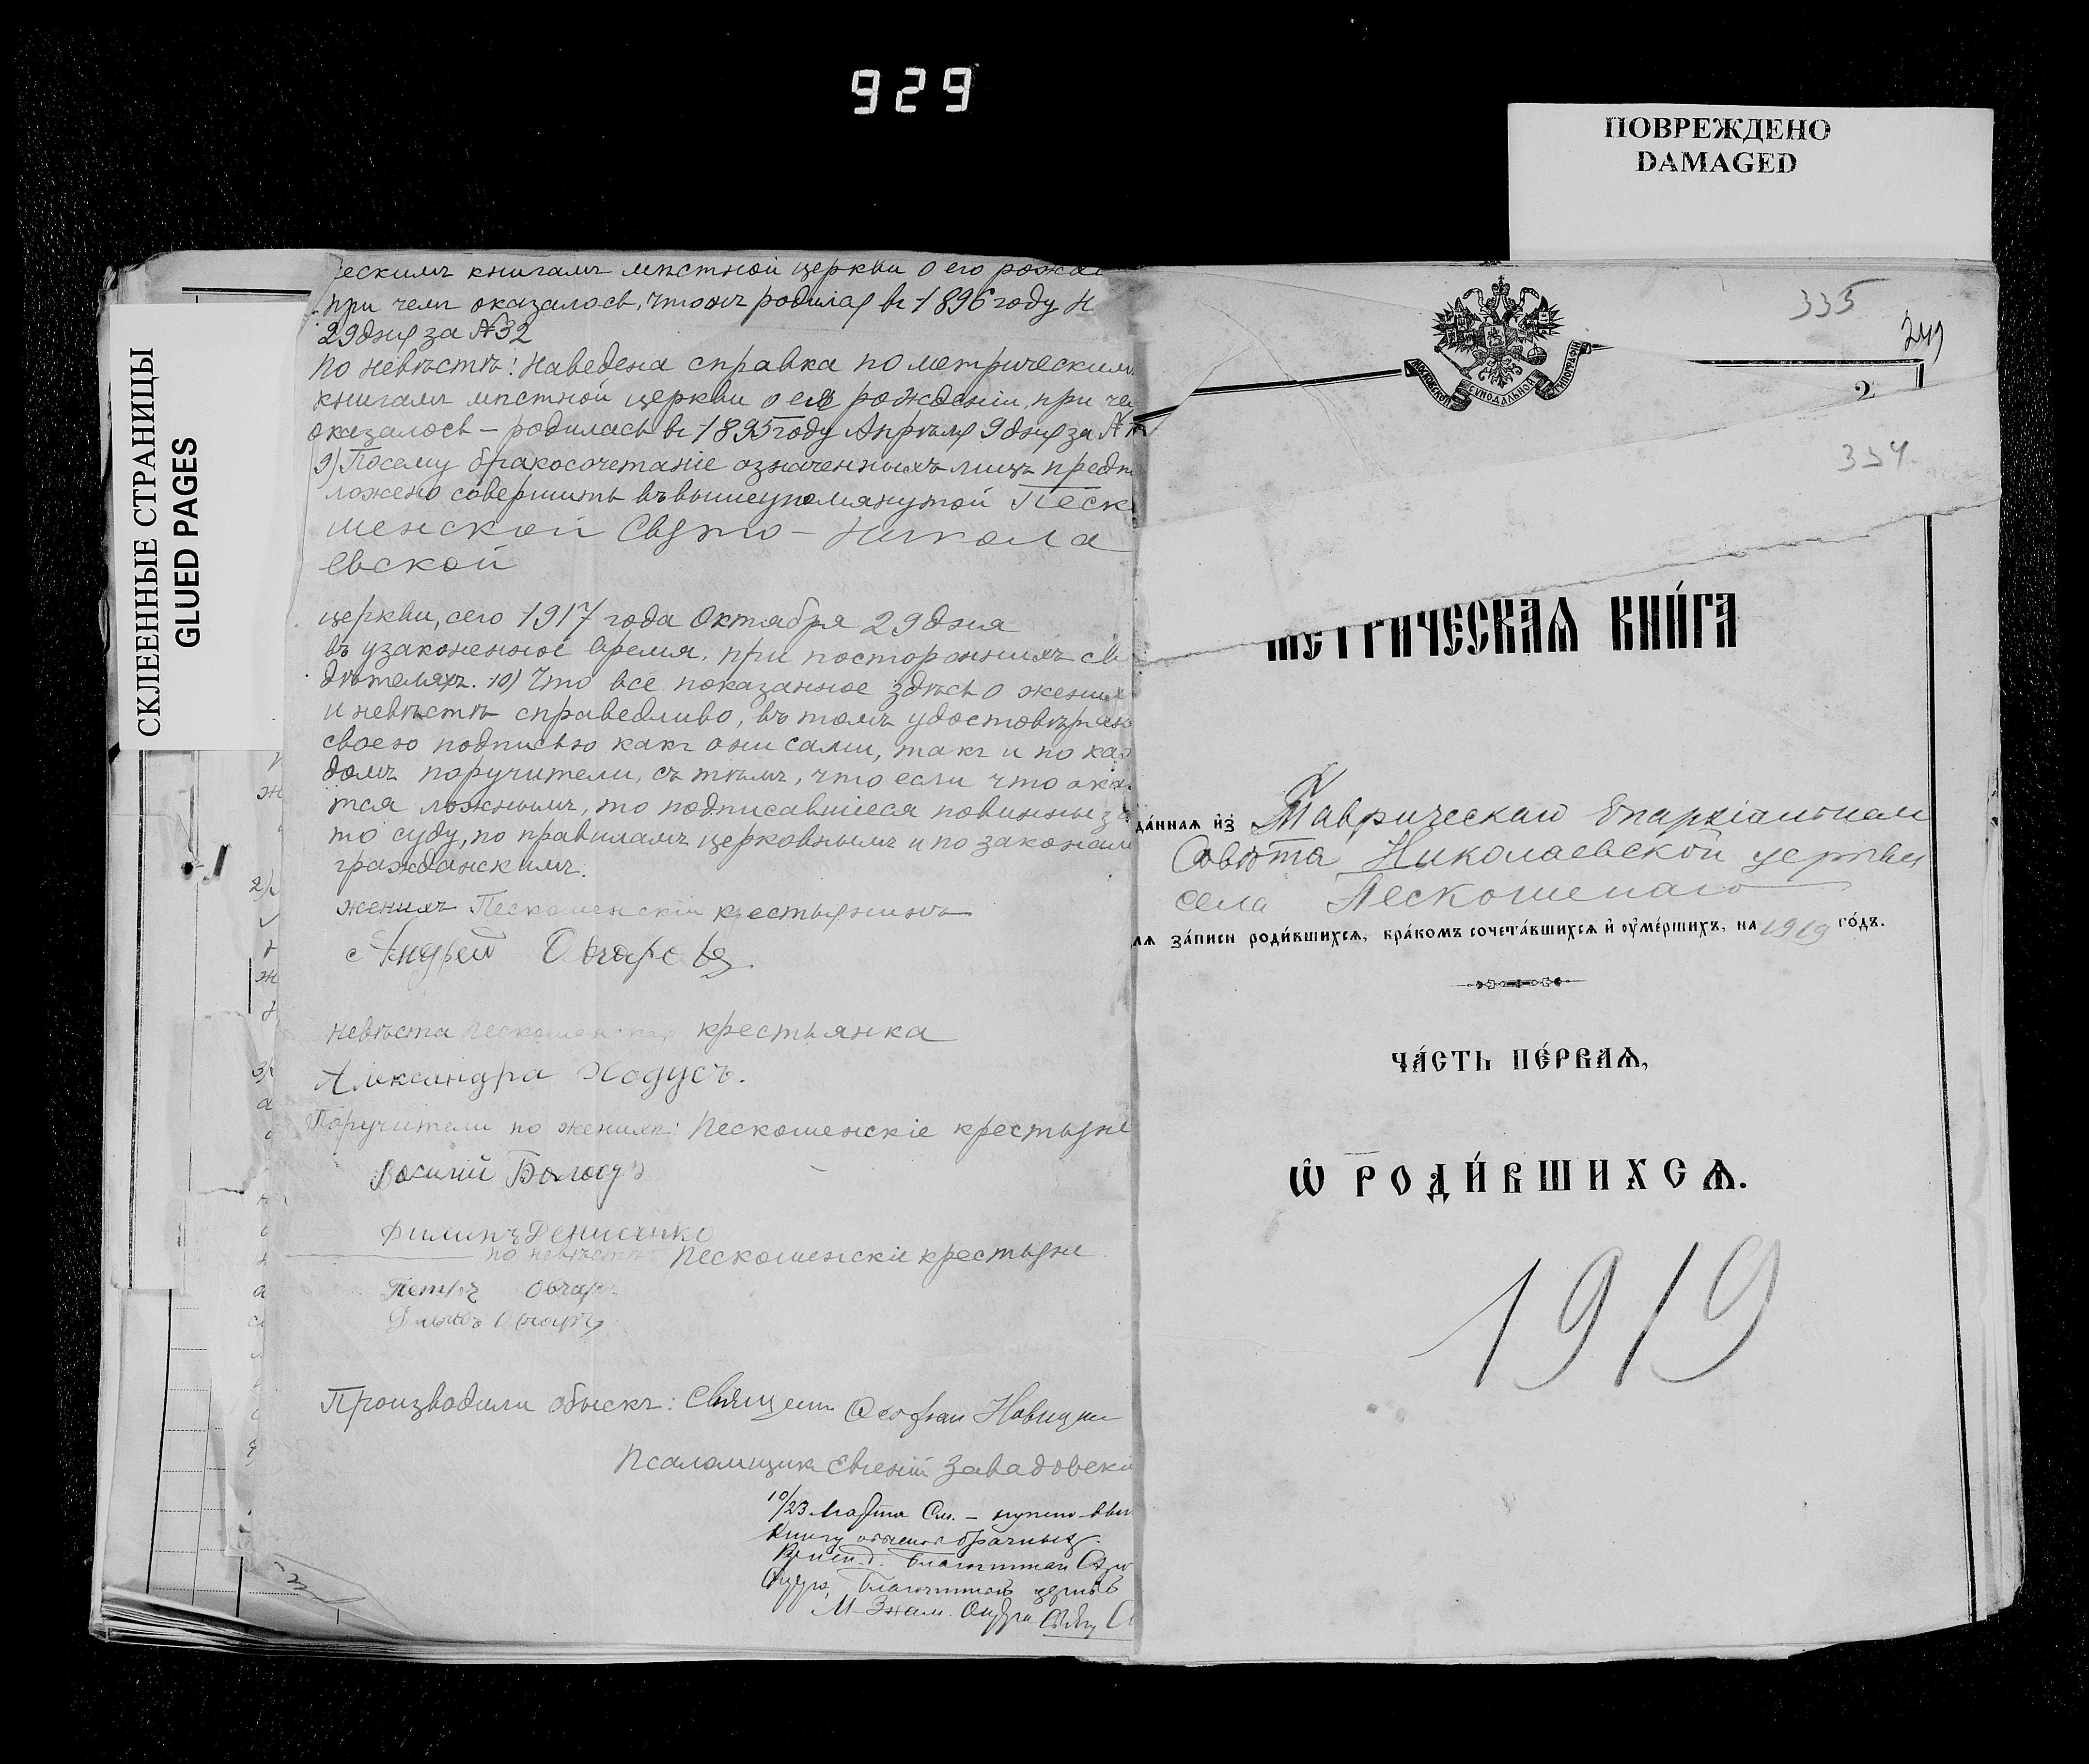 929
ПОВРЕЖДЕНО
DAMAGED
СКЛЕЕННЫЕ СТРАНИЦЫ
GLUED PAGES
ескимъ книгамъ мѣстной церкви о его рожде
при чемъ оказалось, что онъ родился въ 1896 году Н
29 дня за №32
По невѣстѣ: Наведена справка по метрическимъ
книгамъ мѣстной церкви о ея рожденіи, при че
оказалось – родилась въ 1895 году Апрѣля 9 дня за №
9) Посему бракосочетаніе означенныхъ лицъ предп
ложено совершить въ вышеупомянутой Песк
шенской Свято - Никола
евской
церкви, сего 1917 года Октября 29 дня
въ узаконенное время, при постороннихъ св
дѣтеляхъ. 10) Что все показанное здѣсь о жених
и невѣстѣ справедливо, въ томъ удостовѣряю
своею подписью какъ они сами, такъ и по ка
домъ поручители, съ тѣмъ, что если что ока
тся ложнымъ, то подписавшіеся повинны з
то суду, по правиламъ церковнымъ и по законам
гражданскимъ.
женихъ Пескошенскій крестьянинъ
Андрей
невѣста Пескошенская крестьянка
Александра Ходусъ.
Поручители по женихѣ: Пескошенскіе крестьяне
Василій
Филипъ Денисенко
по невѣстѣ Пескошенскіе крестьяне
Петръ Овчар
Производили обыскъ: Священ. Новицкі
Псаломщикъ Евгеній Завадовскі
10/23 Марта
книгу брачныхъ
Благочинный
335
249
2
334
МОСКОВСКОЙ СѴНОДАЛЬНОЙ ТИПОГРАФІИ
МЕТРИЧЕСКАѦ КНИ́ГА
да́ннаѧ и҆з̾ Таврическаго Епархіальнаго
Совѣта Николаевской церкви
села Пескошенаго
лѧ за́писи роди́вшихсѧ, бра́комъ сочета́вшихсѧ и҆ ᲂу҆ме́ршихъ, на 1919 го́дъ.
ЧА́СТЬ ПЕ́РВАѦ,
Ѽ РОДИ́ВШИХСѦ.
1919